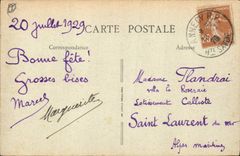 20 juillet 1929
CARTE POSTALE
Correspondance
Bonne fête!
Grosses bises
Marcel
Marguerite
Madame Flandrai
villa la Roseraie
Lotissement Calliste
Saint Laurent du Var
Alpes maritimes